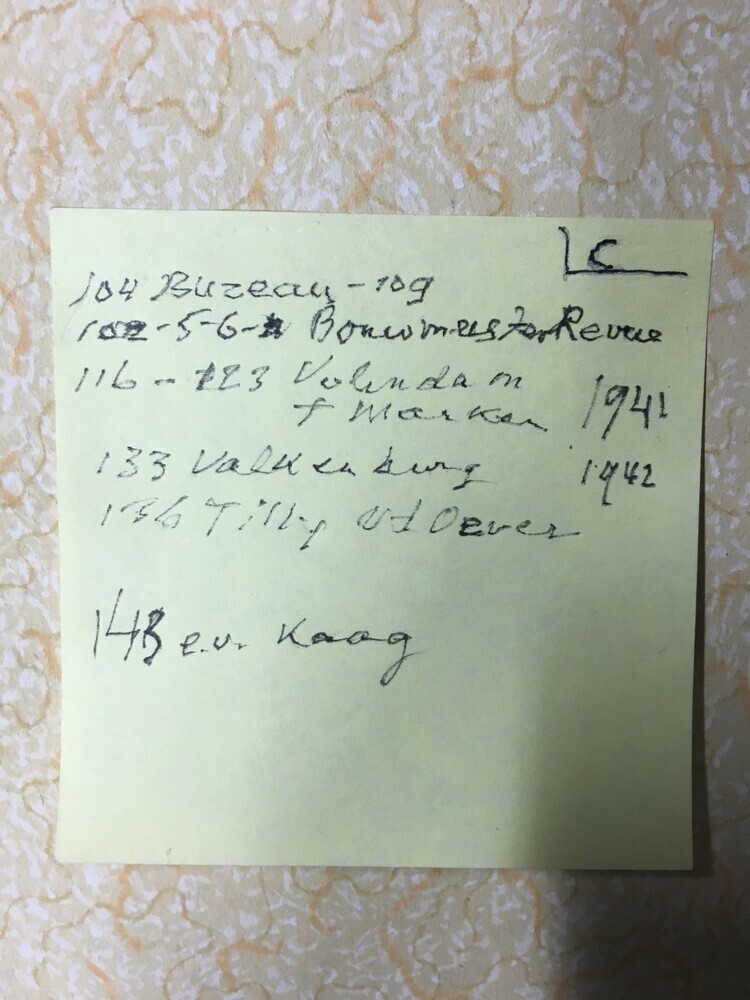 C
104 Bureau - 109
-5-6- Revue
116 - 123 Volendam
+ Marken 1941
133 Valkenburg 1942
136 Tilly vd Oever
143 e.v. Kaag